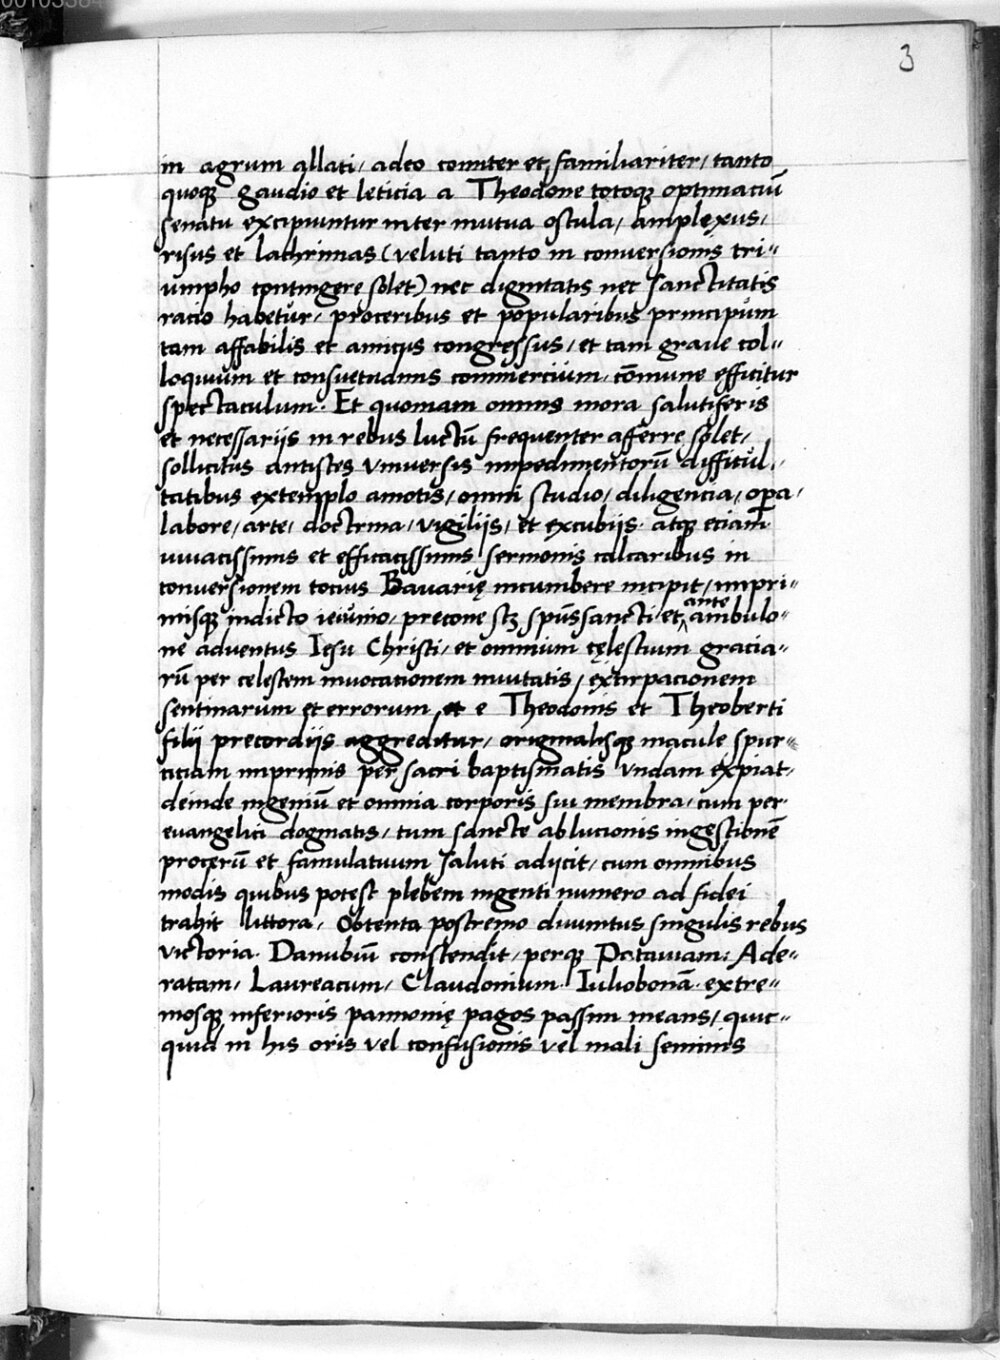 3
in agrum allati / adeo comiter et familiariter / tanto
quoque gaudio et leticia a Theodone totoque optimaciū
senatu excipiuntur inter mutua oscula / amplexus /
risus et lachrimas (veluti tanto in conversionis tri=
umpho contingere solet) nec dignitatis nec sanctitatis
racio habetur / proceribus et popularibus principum
tam affabilis et amicus congressus / et tam graue col=
loquium et consuetudinis commercium / cōmune efficitur
spectaculum. Et quoniam omnis mora salutiferis
et necessarijs in rebus luctū frequenter afferre solet /
sollicitus antistes vniuersis impedimentorū difficul=
tatibus extemplo amotis / omni studio / diligencia / opera /
labore / arte / doctrina / vigilijs / et excubijs atque etiam
viuacissimis et efficacissimis sermonis calcaribus in
conversionem tocius Bauarię incumbere incipit / impri=
misque indicto ieiunio / precone scz spūssancti / et ante ambulo=
ne adventus Iesu Christi / et omnium cęlestium gracia=
rū per celestem invocationem invitatis / extirpacionem
sentinarum et errorum et e Theodonis et Theoberti
filij precordijs aggreditur / originalisque macule spur=
ciciam inprimis per sacri baptismatis vndam expiat /
deinde ingeniū et omnia corporis sui membra / cum per
evangelici dogmatis / tum sancte ablucionis ingestionē
procerū et famulatuum saluti adijcit / cum omnibus
modis quibus potest plebem ingenti numero ad fidei
trahit littora / Obtenta postremo divinitus singulis rebus
victoria. Danubiū conscendit / perque Patauiam. Ade=
ratam / Laureacum / Claudonium. Iuliobonā. extre=
mosque inferioris pannonię pagos passim means / quic=
quid in his oris vel confusionis vel mali seminis